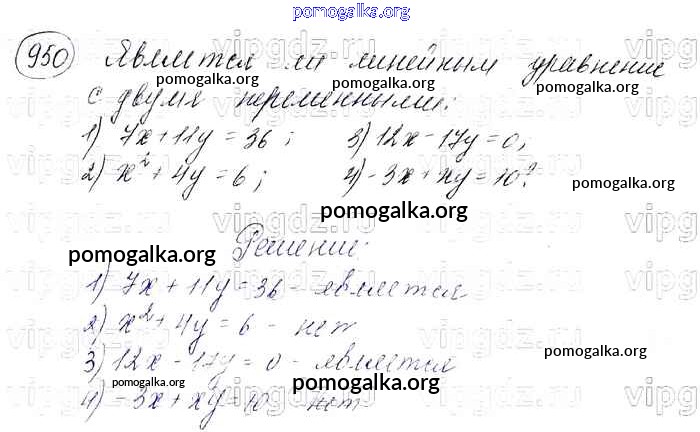 pomogalka.org
950 Является ли линейным уравнение
pomogalka.org pomogalka.org pomogalka.org
с двумя переменными:
1) 7x+11y=36; 3) 12x-17y=0;
2) x²+4y=6; 4) -3x+xy=10?
pomogalka.org
pomogalka.org
pomogalka.org
Решение:
1) 7x+11y=36 - является
2) x²+4y=6 - нет
pomogalka.org
3) 12x-17y=0 - является
pomogalka.org pomogalka.org
4) -3x+xy=10 нет
pomogalka.org
vipgdz.ru